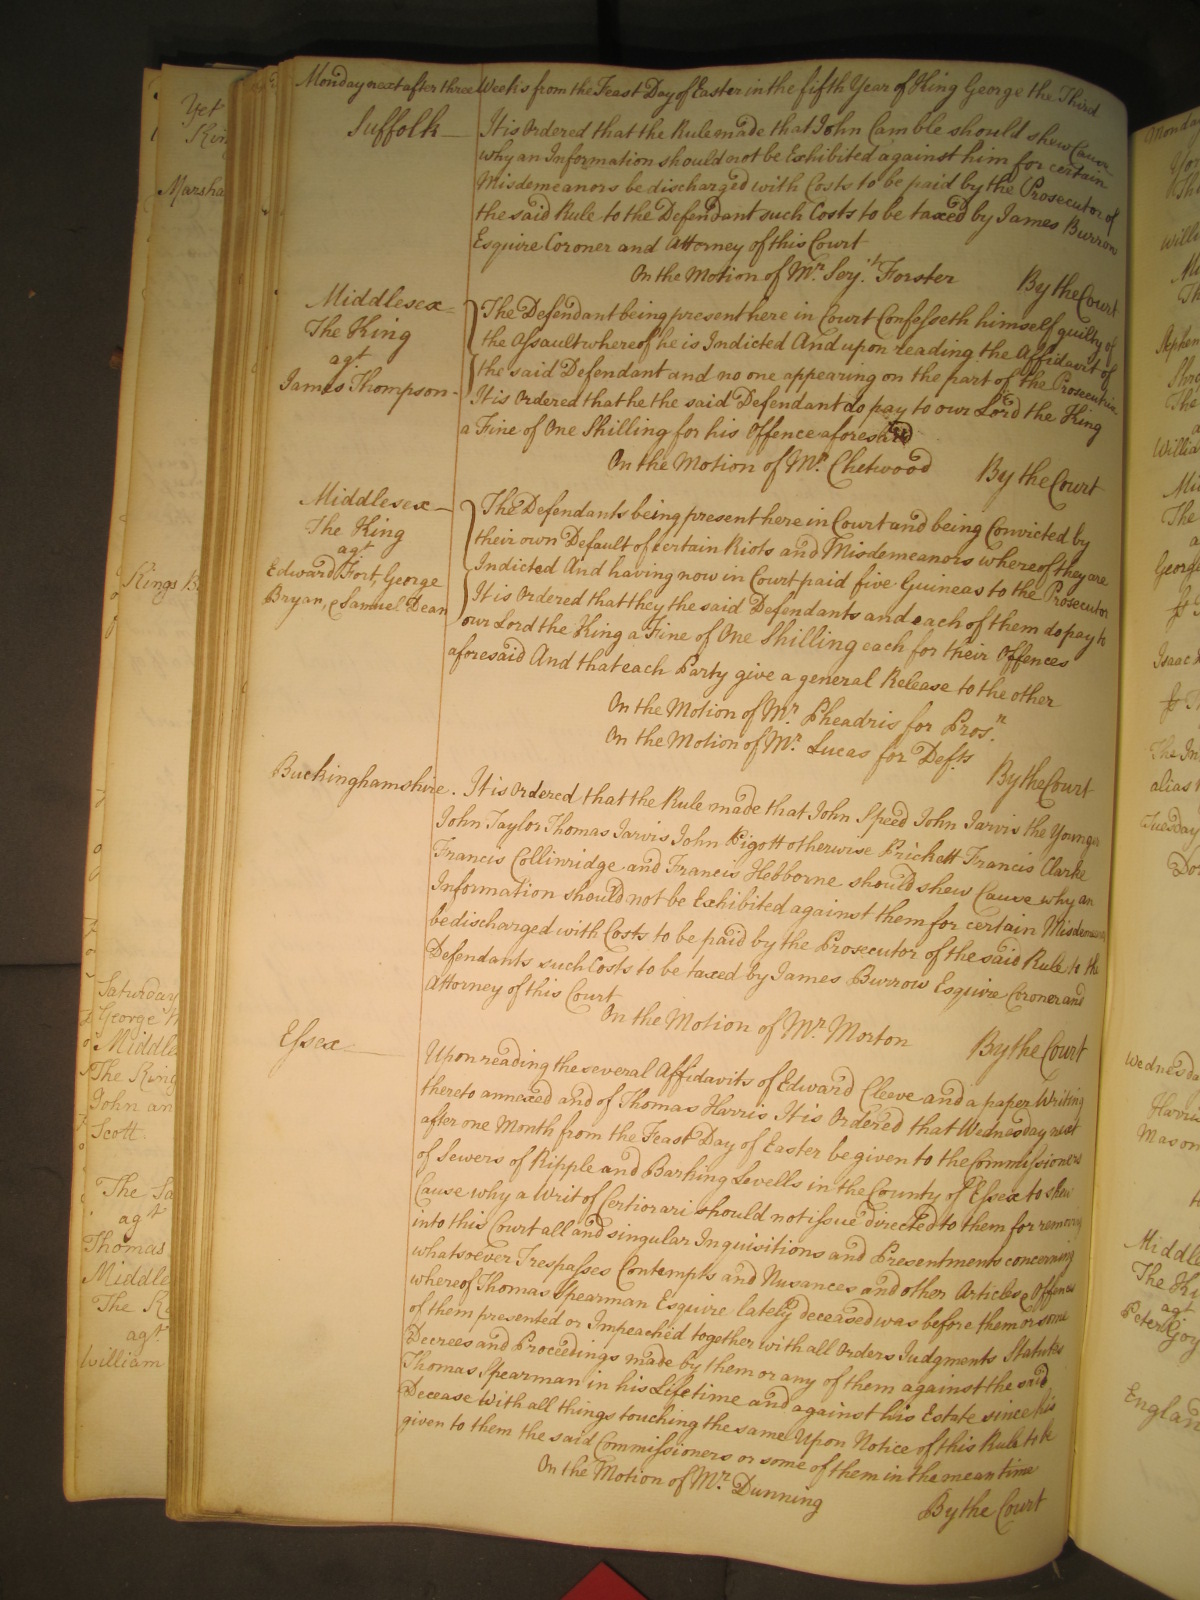 Monday next after three Weeks from the Feast Day of Easter in the fifth Year of King George the Third
Suffolk
It is Ordered that the Rule made that John Camble should shew Cause
why an Information should not be Exhibited against him for certain
Misdemeanors be discharged with Costs to be paid by the Prosecutor of
the said Rule to the Defendant such Costs to be taxed by James Burrow
Esquire Coroner and Attorney of this Court
On the Motion of Mr. Serj.t Forster By the Court
Middlesex
The King
agt
James Thompson
The Defendant being present here in Court Confesseth himself guilty of
the Assault whereof he is Indicted And upon reading the Affidavit of
the said Defendant and no one appearing on the part of the Prosecutrix
It is Ordered that he the said Defendant do pay to our Lord the King
a Fine of One Shilling for his Offence aforesaid
On the Motion of Mr. Chetwood By the Court
Middlesex
The King
agt
Edward Fort, George
Bryan, & Samuel Dean
The Defendants being present here in Court and being Convicted by
their own Default of certain Riots and Misdemeanors whereof they are
Indicted And having now in Court paid five Guineas to the Prosecutor
It is Ordered that they the said Defendants and each of them do pay to
our Lord the King a Fine of One Shilling each for their Offences
aforesaid And that each Party give a general Release to the other
On the Motion of Mr. Pheadris for Pros.r
On the Motion of Mr. Lucas for Defts
By the Court
Buckinghamshire. It is Ordered that the Rule made that John Speed John Jarvis the Younger
John Taylor Thomas Jarvis John Pigott otherwise Prickett Francis Clarke
Francis Collinridge and Francis Hebborne should shew Cause why an
Information should not be Exhibited against them for certain Misdemeanors
be discharged with Costs to be paid by the Prosecutor of the said Rule to the
Defendants such Costs to be taxed by James Burrow Esquire Coroner and
Attorney of this Court
On the Motion of Mr. Morton By the Court
Essex
Upon reading the several Affidavits of Edward Cleeve and a paper Writing
thereto annexed and of Thomas Harris It is Ordered that Wednesday next
after one Month from the Feast Day of Easter be given to the Commissioners
of Sewers of Ripple and Barking Levells in the County of Essex to shew
Cause why a Writ of Certiorari should not issue directed to them for removing
into this Court all and singular Inquisitions and Presentments concerning
whatsoever Trespasses Contempts and Nusances and other Articles & Offences
whereof Thomas Spearman Esquire lately deceased was before them or some
of them presented or Impeached together with all Orders Judgments Statutes
Decrees and Proceedings made by them or any of them against the said
Thomas Spearman in his Lifetime and against his Estate since his
Decease With all things touching the same Upon Notice of this Rule to be
given to them the said Commissioners or some of them in the mean time
On the Motion of Mr. Dunning
By the Court
Saturday
The King
John an
Scott
agt
Thomas
agt
William